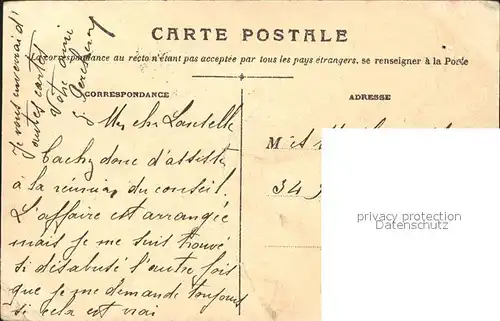 CARTE POSTALE
La correspondance au recto n'étant pas acceptée par tous les pays étrangers, se renseigner à la Poste
CORRESPONDANCE
ADRESSE
Je vous enverrai d'
autres cartes
Votre ami
My cher
tachez donc d'assister
à la réunion du conseil.
L'affaire est arrangée
mais je me suis trouvé
si désabusé l'autre fois
que je me demande toujours
si cela est vrai
M
34
privacy protection
Datenschutz